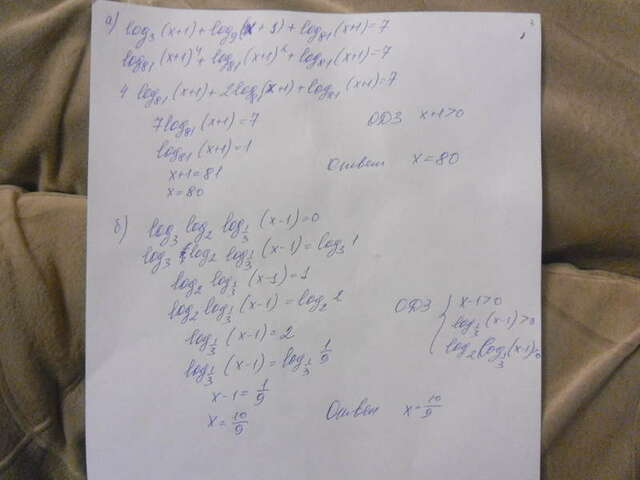 а) log₃(x+1)+log₉(x+1)+log₈₁(x+1)=7
log₈₁(x+1)⁴+log₈₁(x+1)²+log₈₁(x+1)=7
4 log₈₁(x+1)+2log₈₁(x+1)+log₈₁(x+1)=7
7log₈₁(x+1)=7 ОДЗ x+1>0
log₈₁(x+1)=1
x+1=81 Ответ x=80
x=80
б) log₃ log₂ log_{1/3} (x-1)=0
log₃ log₂ log_{1/3} (x-1)=log₃ 1
log₂ log_{1/3} (x-1)=1
log₂ log_{1/3} (x-1)=log₂ 2 ОДЗ { x-1>0
log_{1/3} (x-1)=2 log_{1/3} (x-1)>0
log_{1/3} (x-1)=log_{1/3} 1/9 log₂(log_{1/3}(x-1)>0
x-1=1/9
x=10/9 Ответ x=10/9